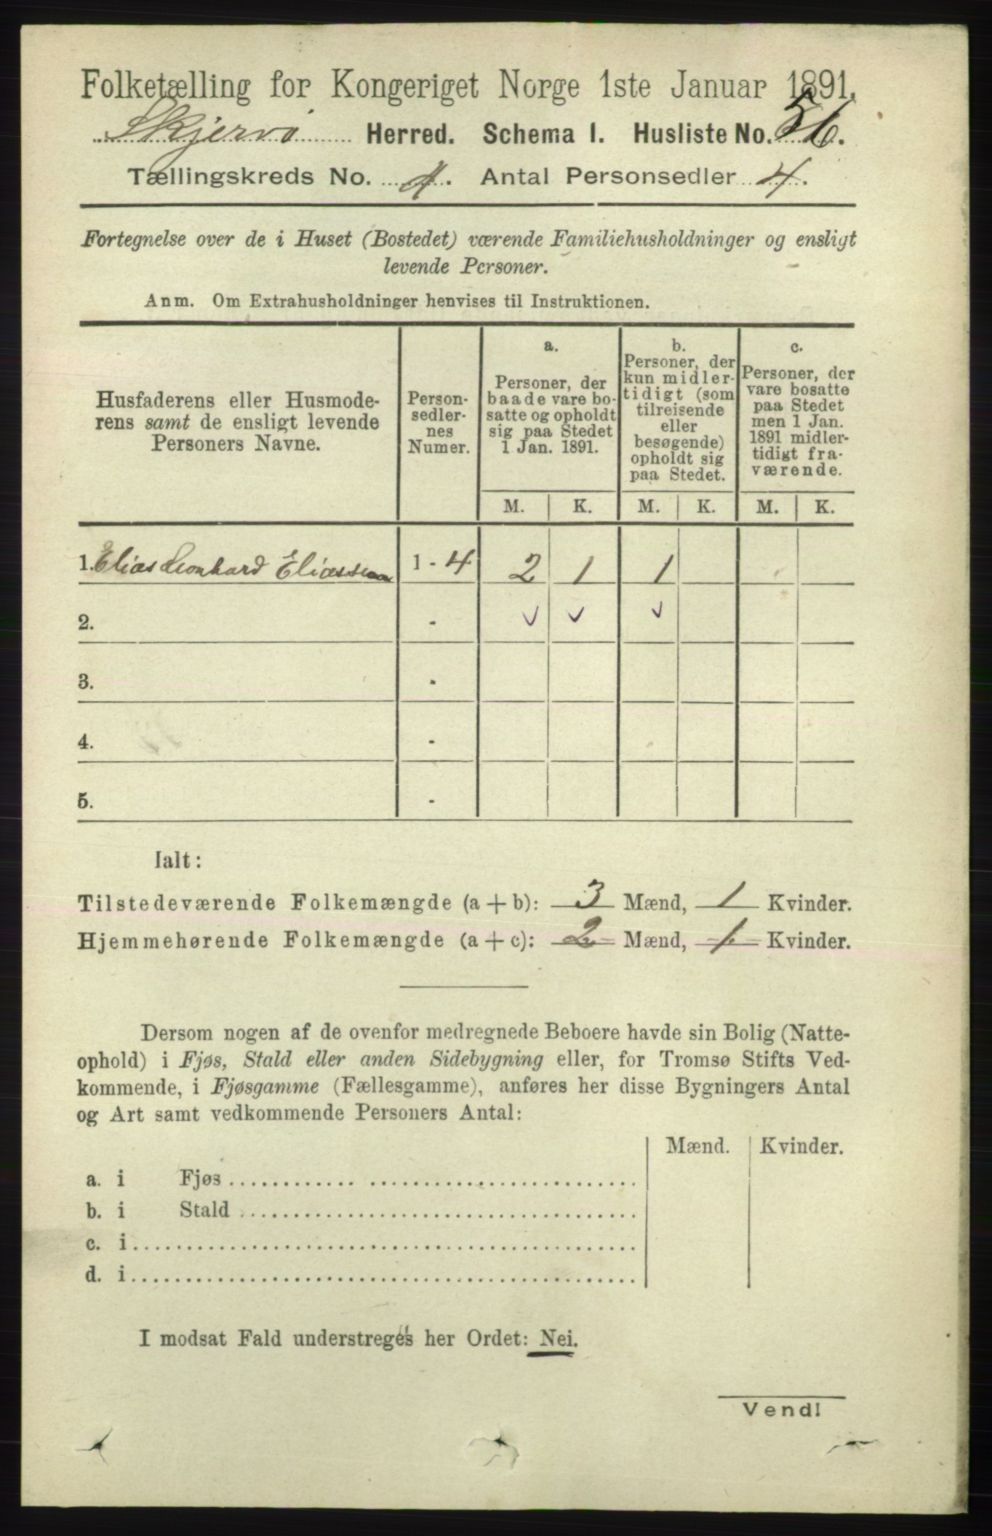 Folketælling for Kongeriget Norge 1ste Januar 1891.
Skjervø Herred. Schema I. Husliste No. 56.
Tællingskreds No. 1. Antal Personsedler 4.
Fortegnelse over de i Huset (Bostedet) værende Familiehusholdninger og ensligt
levende Personer.
Anm. Om Extrahusholdninger henvises til Instruktionen.
Husfaderens eller Husmode-
rens samt de ensligt levende
Personers Navne.
Person-
sedler-
nes
Numer.
a.
Personer, der
baade vare bo-
satte og opholdt
sig paa Stedet
1 Jan. 1891.
b.
Personer, der
kun midler-
tidigt (som
tilreisende
eller
besøgende)
opholdt sig
paa Stedet.
c.
Personer, der
vare bosatte
paa Stedet
men 1 Jan.
1891 midler-
tidigt fra-
værende.
M. K. M. K. M. K.
1. Elias Leonhard Eliassen 1 - 4 2 1 1
2. - ✓ ✓ ✓
3. -
4. -
5. -
Ialt:
Tilstedeværende Folkemængde (a + b): 3 Mænd, 1 Kvinder.
Hjemmehørende Folkemængde (a + c): 2 Mænd, 1 Kvinder.
Dersom nogen af de ovenfor medregnede Beboere havde sin Bolig (Natte-
ophold) i Fjøs, Stald eller anden Sidebygning eller, for Tromsø Stifts Ved-
kommende, i Fjøsgamme (Fællesgamme), anføres her disse Bygningers Antal
og Art samt vedkommende Personers Antal:
Mænd. Kvinder.
a. i Fjøs
b. i Stald
c. i
d. i
I modsat Fald understreges her Ordet: Nei.
Vend!